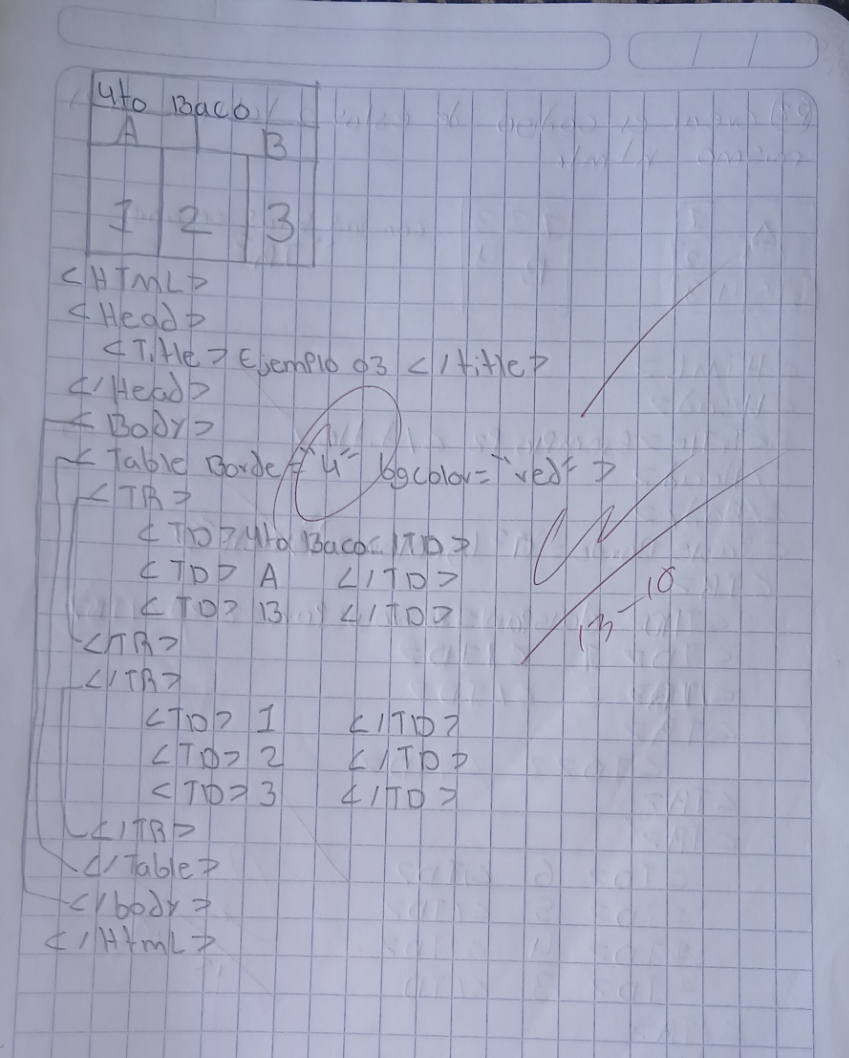 4to Baco
A B
1 2 3
<HTML>
<Head>
<Title> Ejemplo 03 </title>
</Head>
<Body>
<Table Borde="4" bgcolor="red">
<TR>
<TD>4to Baco</TD>
<TD> A </TD>
<TD> B </TD>
</TR>
</TR>
<TD> 1 </TD>
<TD> 2 </TD>
<TD> 3 </TD>
</TR>
</Table>
</body>
</HtmL>